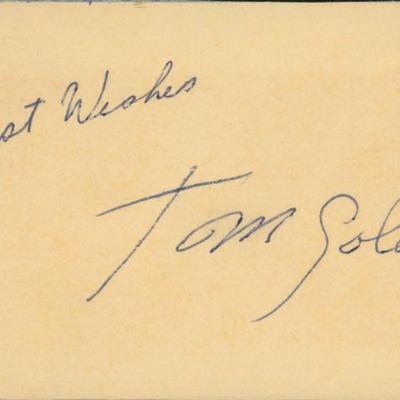 st Wishes
Tom Gol